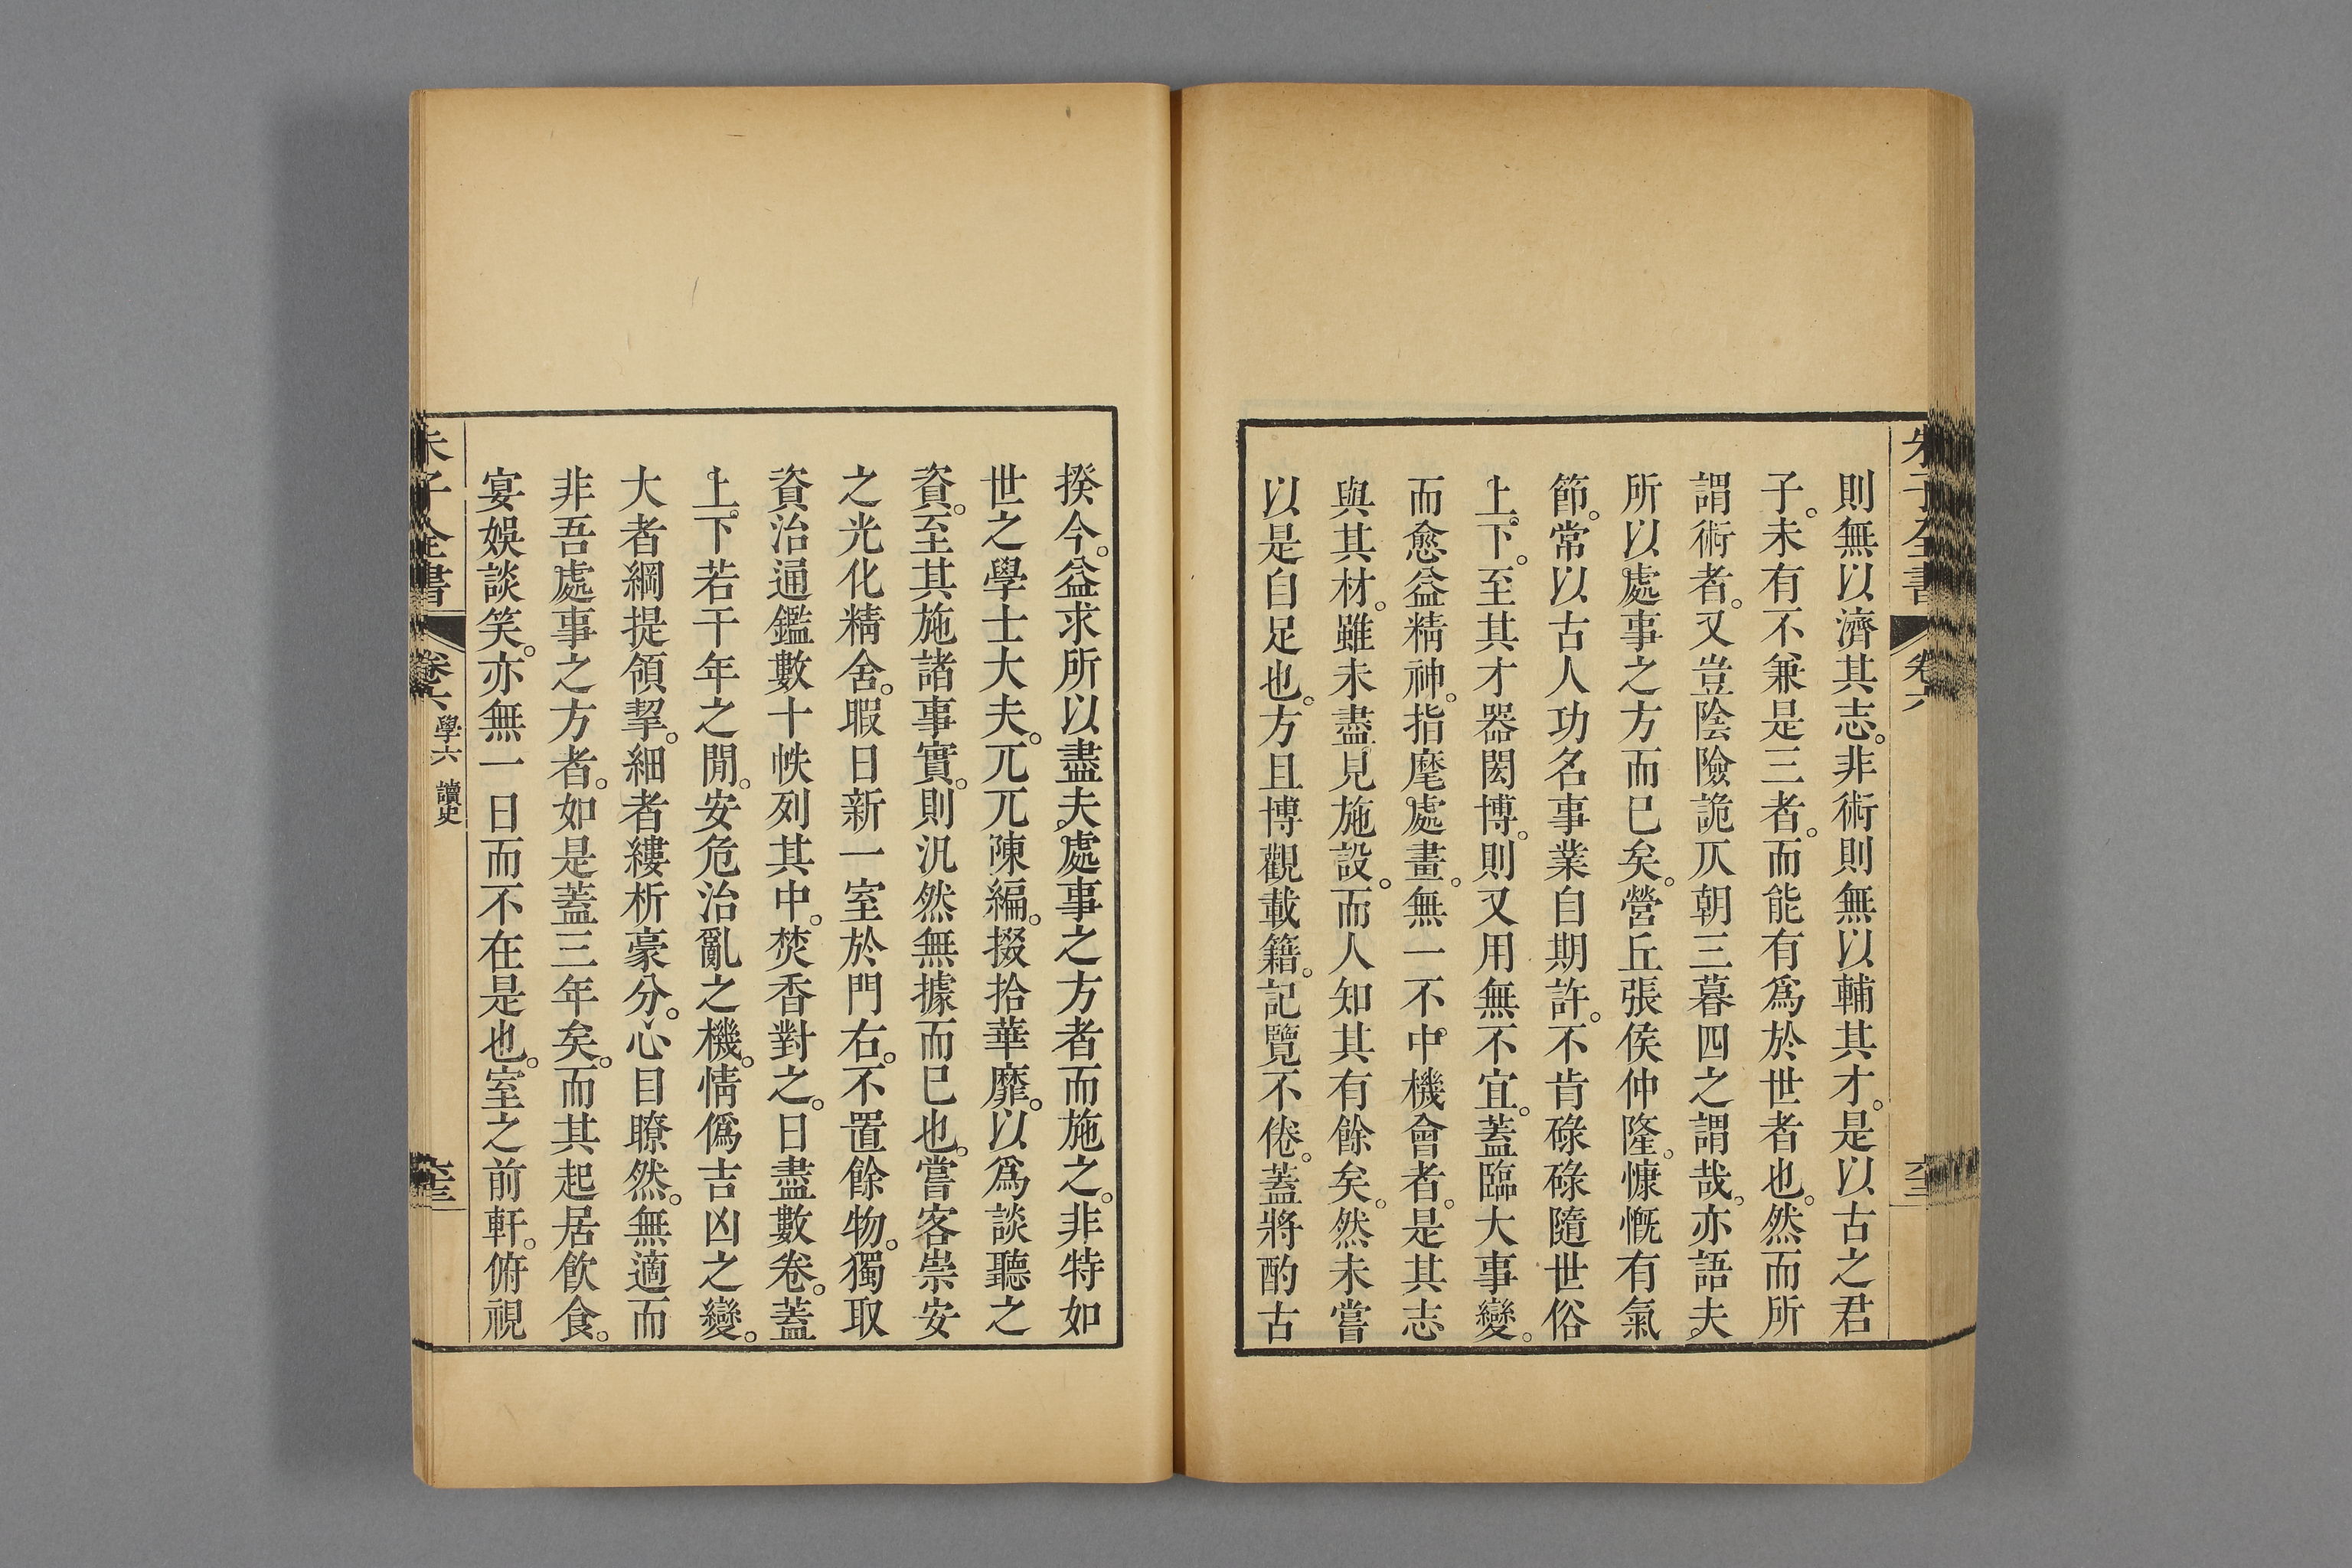 朱子全書
卷六
則無以濟其志。非術則無以輔其才。是以古之君
子。未有不兼是三者。而能有爲於世者也。然而所
謂術者。又豈陰險詭仄朝三暮四之謂哉。亦語夫
所以處事之方而已矣。營丘張侯仲隆。慷慨有氣
節。常以古人功名事業自期許。不肯碌碌隨世俗
上下。至其才器閎博。則又用無不宜。蓋臨大事變。
而愈益精神。指麾處畫。無一不中機會者。是其志
與其材。雖未盡見施設。而人知其有餘矣。然未嘗
以是自足也。方且博觀載籍。記覽不倦。蓋將酌古
揆今。益求所以盡夫處事之方者而施之。非特如
世之學士大夫。兀兀陳編。掇拾華靡。以爲談聽之
資。至其施諸事實。則汎然無據而已也。嘗客崇安
之光化精舍。暇日新一室於門右。不置餘物。獨取
資治通鑑數十帙列其中。焚香對之。日盡數卷。蓋
上下若干年之閒。安危治亂之機。情僞吉凶之變。
大者綱提領挈。細者縷析豪分。心目瞭然。無適而
非吾處事之方者。如是蓋三年矣。而其起居飮食。
宴娛談笑。亦無一日而不在是也。室之前軒。俯視
朱子全書
卷六
學六
讀史